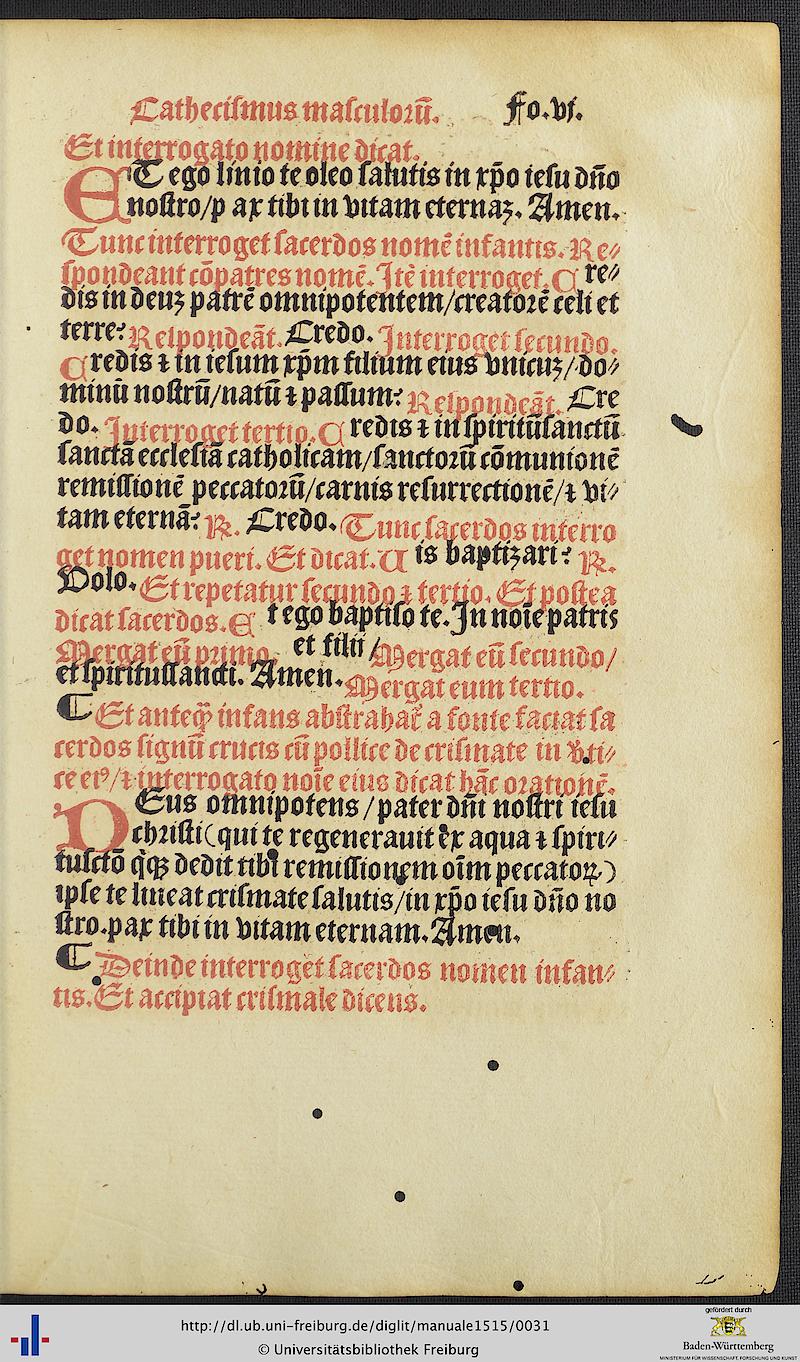 Cathecismus masculorū. Fo.vj.
Et interrogato nomine dicat.
ET ego linio te oleo salutis in xp̄o iesu dn̄o
nostro/p ax tibi in vitam eternaꝫ. Amen.
Tunc interroget sacerdos nomē infantis. Re⸗
spondeant cōpatres nomē. Itē interroget. C re⸗
dis in deuꝫ patrē omnipotentem/creatorē celi et
terre? Respondeāt. Credo. Interroget secundo.
C redis ⁊ in iesum xp̄m filium eius vnicuꝫ/do⸗
minū nostrū/natū ⁊ passum? Respondeāt. Cre
do. Interroget tertio. C redis ⁊ in spiritūsanctū
sanctā ecclesiā catholicam/sanctorū cōmunionē
remissionē peccatorū/carnis resurrectionē/⁊ vi⸗
tam eternā? ℟. Credo. Tunc sacerdos interro
get nomen pueri. Et dicat. U is baptizari? ℟.
Volo. Et repetatur secundo ⁊ tertio. Et postea
dicat sacerdos. E t ego baptiso te. In noīe patris
Mergat eū primo. et filii/Mergat eū secundo/
et spiritussancti. Amen. Mergat eum tertio.
¶ Et anteq̄ȝ infans abstrahat᷑ a fonte faciat sa
cerdos signū crucis cū pollice de crismate in v̾ti⸗
ce eiꝰ/⁊ interrogato noīe eius dicat hāc orationē.
DEus omnipotens/pater dn̄i nostri iesu
christi(qui te regenerauit ex aqua ⁊ spiri⸗
tusctō q̄qꝫ dedit tibi remissionem oīm peccatoꝝ)
ipse te lineat crismate salutis/in xp̄o iesu dn̄o no
stro.pax tibi in vitam eternam. Amen.
¶ Deinde interroget sacerdos nomen infan⸗
tis. Et accipiat crismale dicens.
http://dl.ub.uni-freiburg.de/diglit/manuale1515/0031
© Universitätsbibliothek Freiburg
gefördert durch
Baden-Württemberg
MINISTERIUM FÜR WISSENSCHAFT, FORSCHUNG UND KUNST